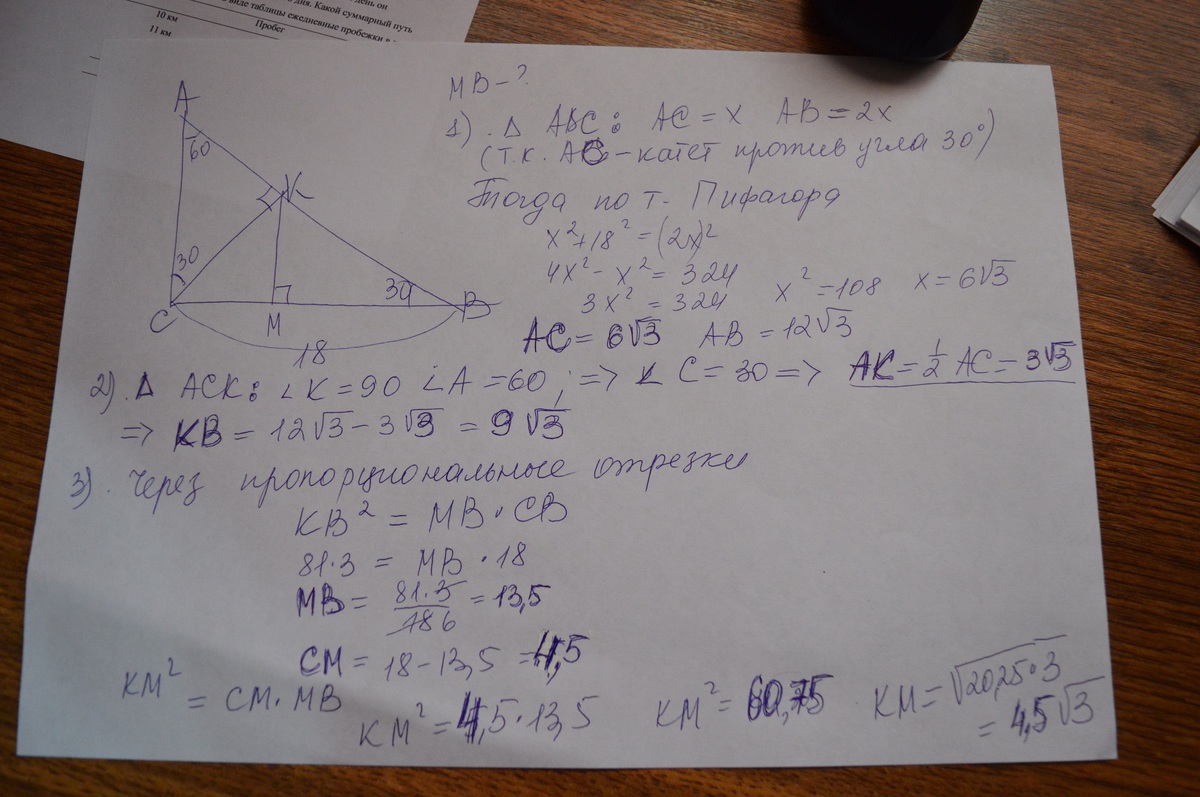 день он
дня. Какой суммарный путь
виде таблицы ежедневные пробежки в
10 км
Пробег
11 км
A
60
K
30
30
C
M
B
18
MB - ?
1). Δ ABC: AC = x AB = 2x
(т.к. AC - катет против угла 30°)
Тогда по т. Пифагора
x² + 18² = (2x)²
4x² - x² = 324
3x² = 324 x² = 108 x = 6√3
AC = 6√3 AB = 12√3
2). Δ ACK: ∠K = 90 ∠A = 60, => ∠ C = 30 => AK = 1/2 AC = 3√3
=> KB = 12√3 - 3√3 = 9√3
3). Через пропорциональные отрезки
KB² = MB · CB
81·3 = MB · 18
MB = 81·3/186 = 13,5
CM = 18 - 13,5 = 4,5
KM² = CM · MB
KM² = 4,5 · 13,5 KM² = 60,75 KM = √20,25·3
= 4,5√3